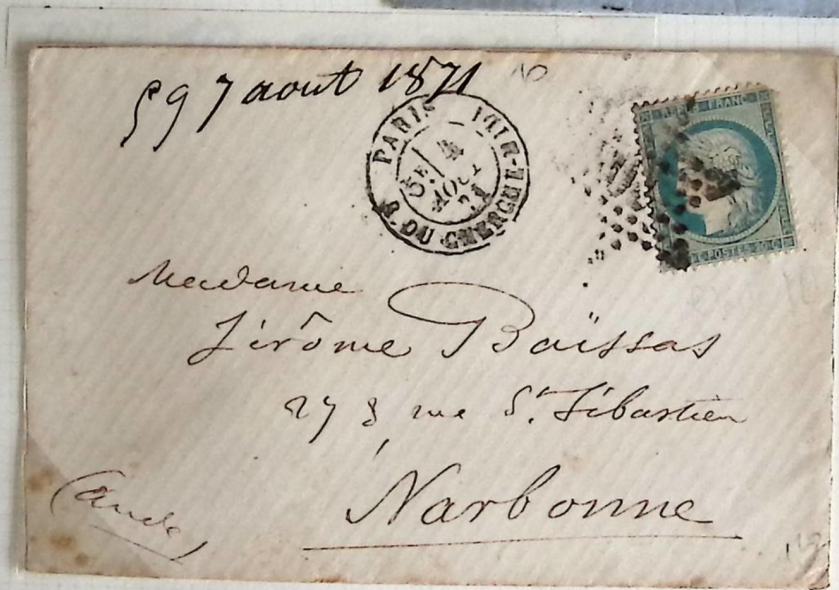 59 7 aout 1871
PARIS
5E/ 4
AOUT
71
R. DU CHERCHE-MIDI
REPUB FRANC
POSTES 20 C
Madame
Jérôme Baïssas
27 rue St. Sébastien
Narbonne
(aude)